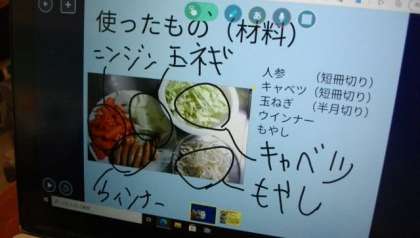 使ったもの（材料）
ニンジン 玉ネギ
人参　（短冊切り）
キャベツ（短冊切り）
玉ねぎ　（半月切り）
ウインナー
もやし
キャベツ
ウィンナー
もやし